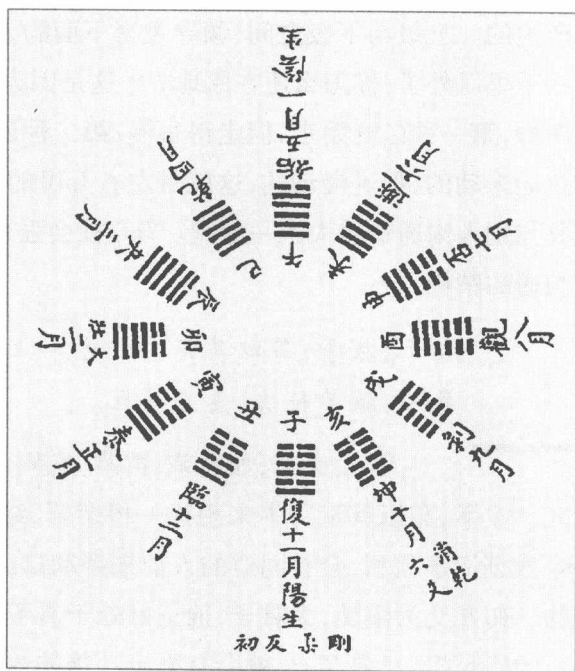 姤五月一陰生
午
遯六月
未
否七月
申
觀八月
酉
剝九月
戌
坤十月
消乾
六爻
亥
復十一月陽生
子
臨十二月
丑
泰正月
寅
大壯
二月
卯
夬三月
辰
乾四月
巳
剛反初